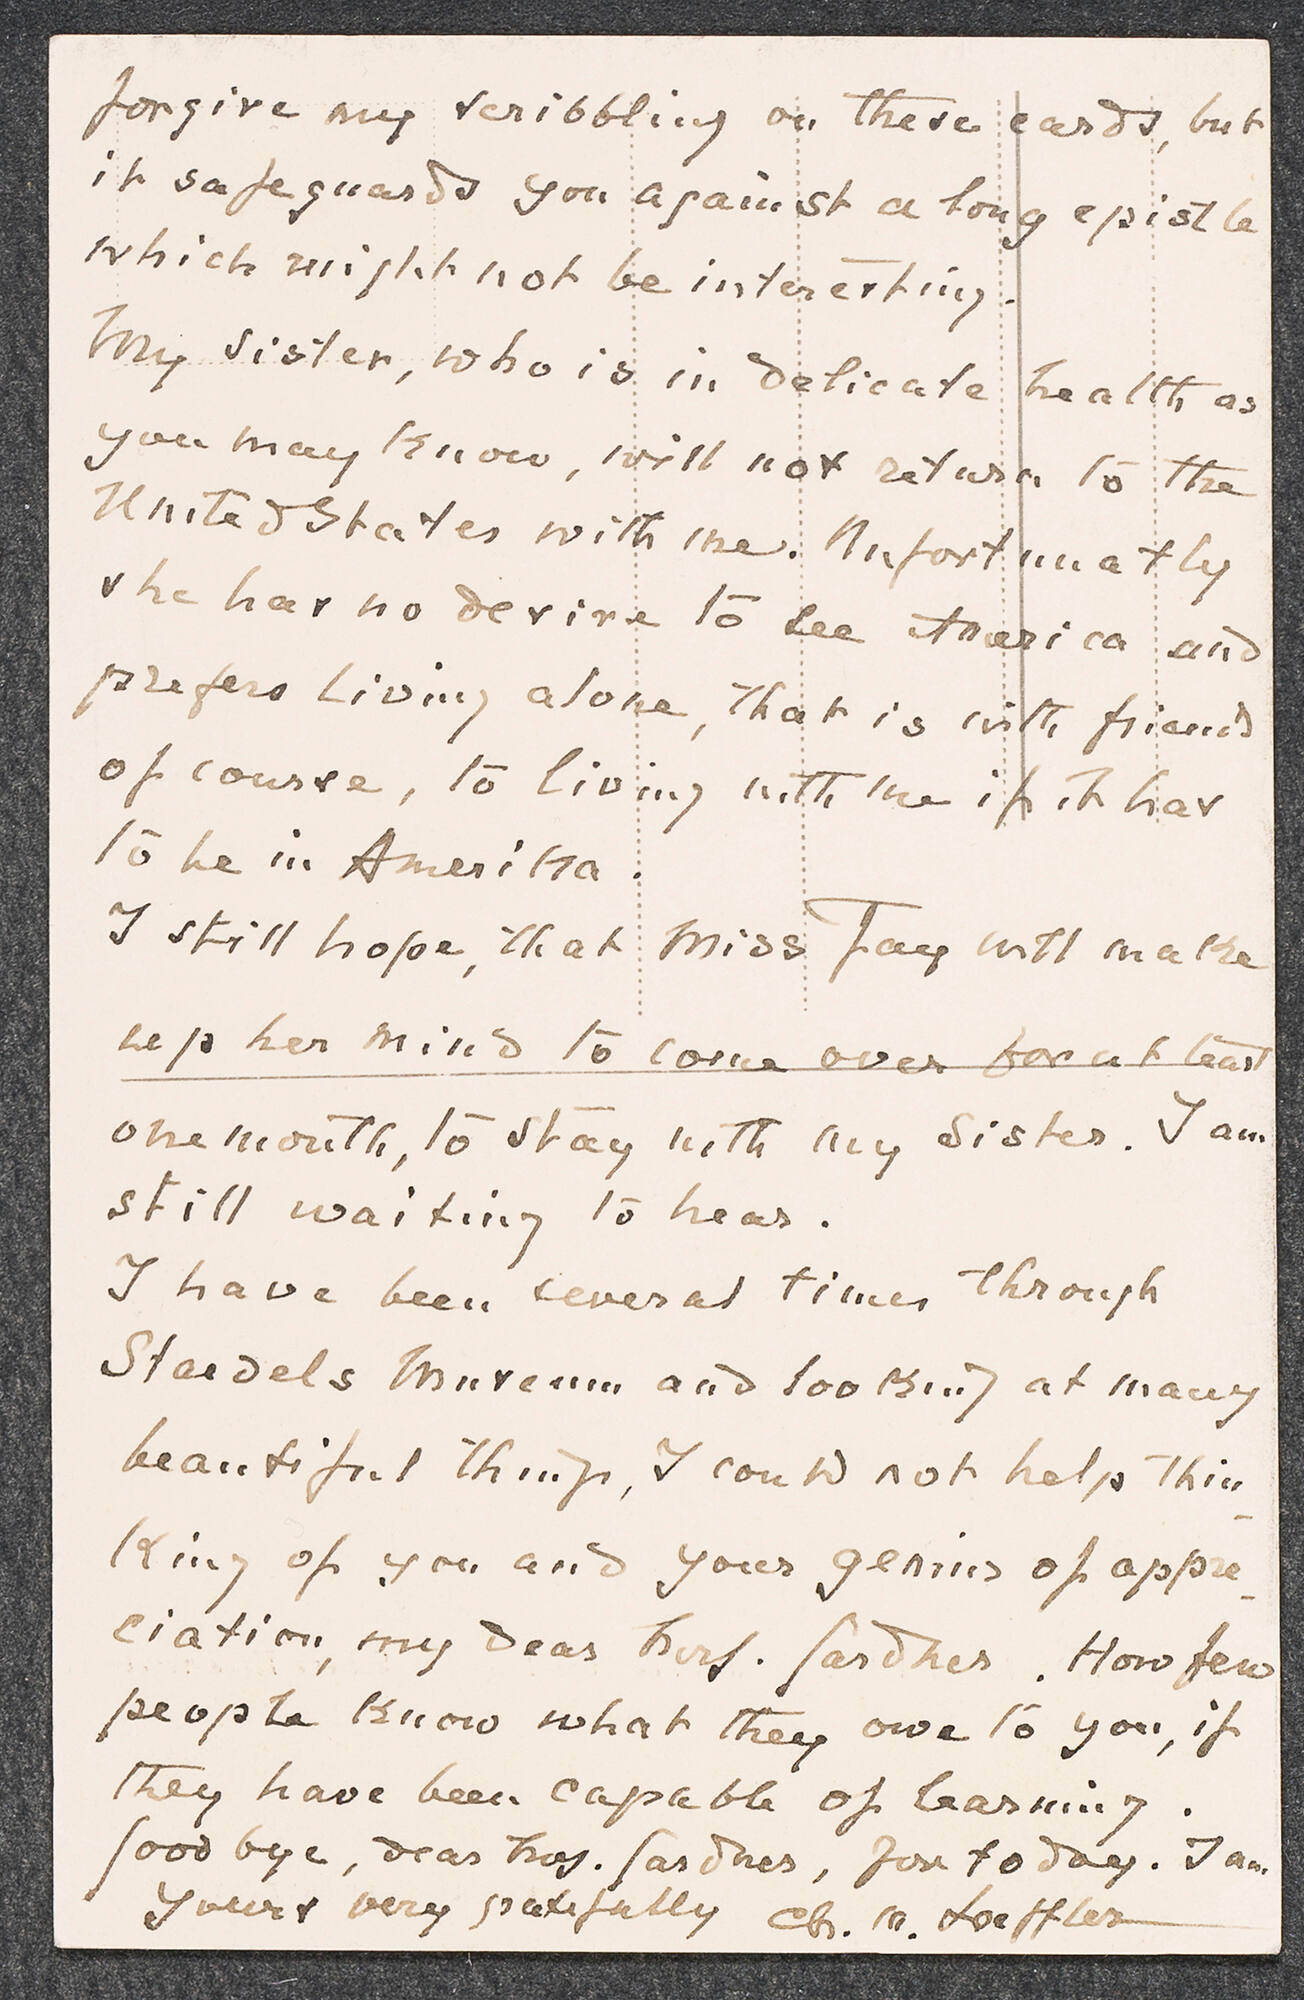 forgive my scribbling on these cards, but
it safeguards you against a long epistle
which might not be interesting.
My sister, who is in delicate health as
you may know, will not return to the
United States with me. Unfortunatly
she has no desire to see America and
prefers living alone, that is with friends
of course, to living with me if it has
to be in Amerika.
I still hope, that Miss Fay will make
up her mind to come over for at least
one month, to stay with my sister. I am
still waiting to hear.
I have been several times through
Staedels Museum and looking at many
beautiful things, I could not help thin-
king of you and your genius of appre-
ciation, my dear Mrs. Gardner. How few
people know what they owe to you, if
they have been capable of learning.
Good bye, dear Mrs. Gardner, for to day. I am
Yours very gratefully Ch. M. Loeffler